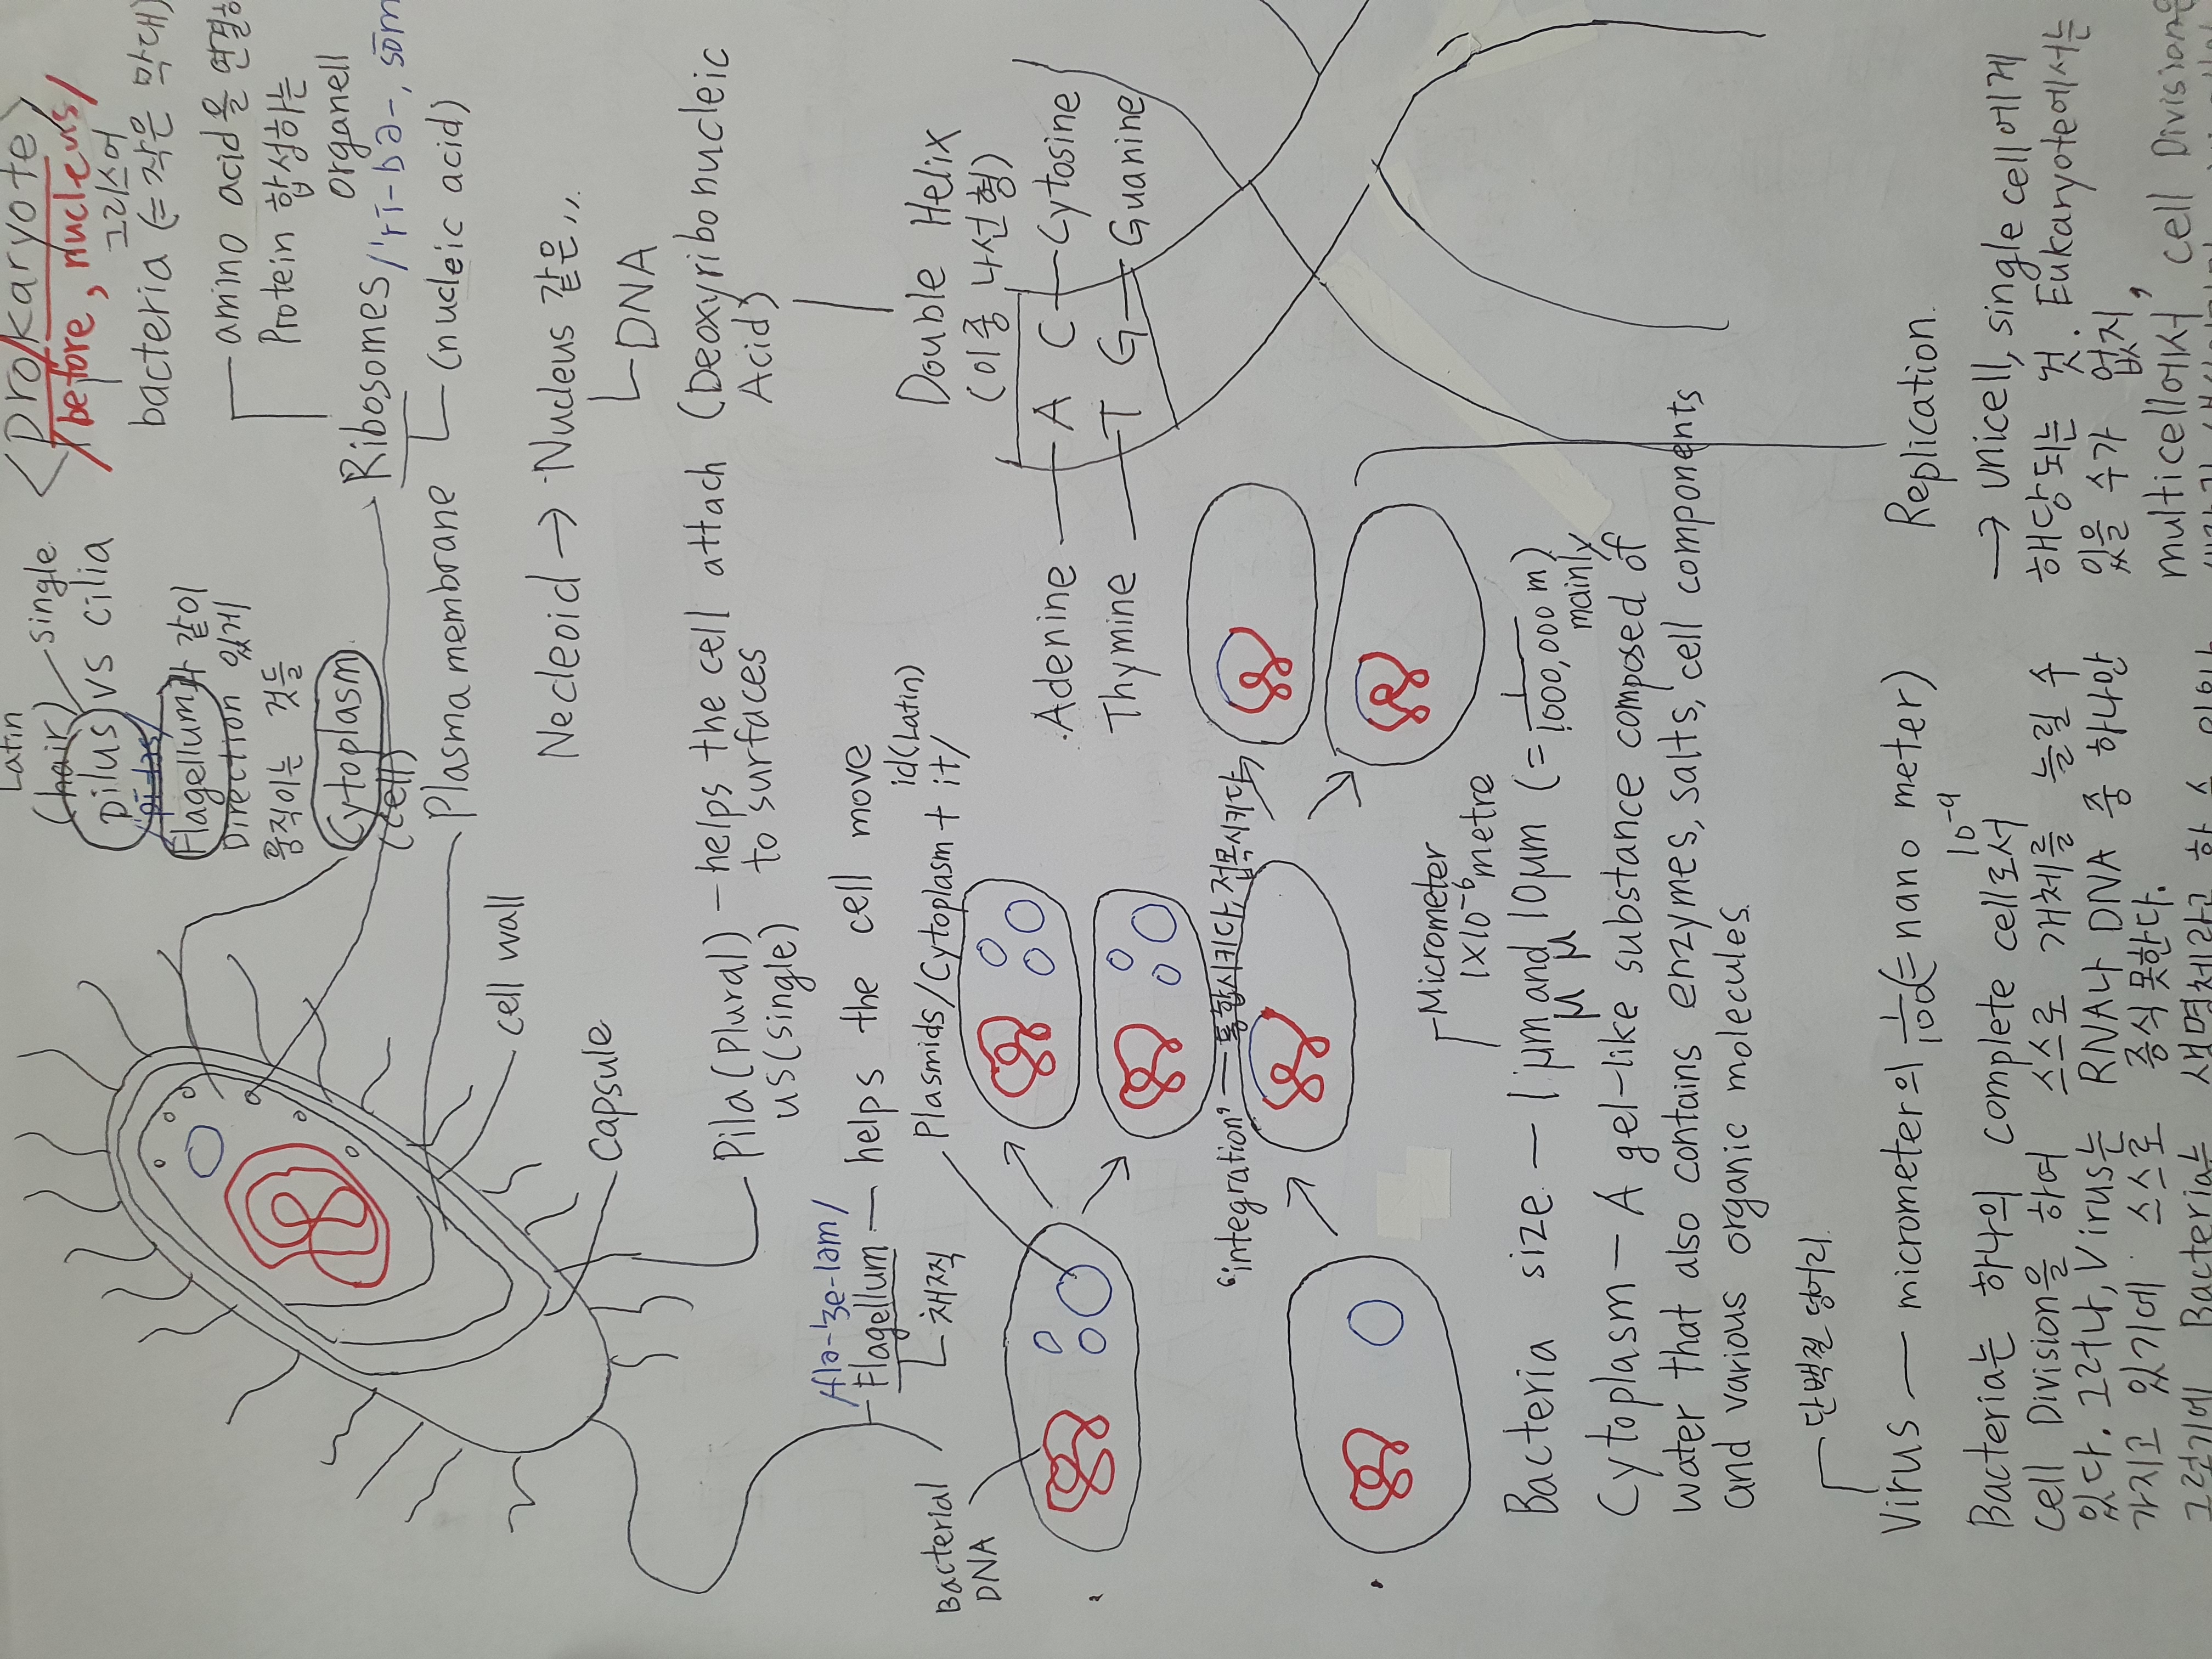 <Prokaryote>
/before, nucleus/
그리스어
bacteria (= 작은 막대)
Latin
(hair) - single
pilus vs cilia
Flagellum과 같이
Direction 있게
움직이는 것들
Cytoplasm
(cell)
amino acid을 연결
Protein 합성하는
organell
Ribosomes /'rī-bə-, sōm
(nucleic acid)
Plasma membrane
cell wall
capsule
Necleoid → Nucleus 같은,,
DNA
(Deoxyribonucleic
Acid)
Pila (Plural) - helps the cell attach
us (single) to surfaces
/flə-'ʒe-ləm/
Flagellum - helps the cell move
id (Latin)
Plasmids / Cytoplasm + it/
Bacterial
DNA
Double Helix
(이중 나선형)
Adenine - A C - Cytosine
Thymine - T G - Guanine
"integration" - 통합시키다, 접목시키다
Micrometer
1x10⁻⁶ metre
Bacteria size - 1 μm and 10 μm (= 1/1000,000 m)
μ μ
mainly
Cytoplasm - A gel-like substance composed of
water that also contains enzymes, salts, cell components
and various organic molecules.
단백질 덩어리
Virus - micrometer의 1/100 (= nano meter)
10⁻⁹
Bacteria는 하나의 complete cell로서
cell Division을 하여 스스로 개체를 늘릴 수
있다. 그러나, Virus는 RNA나 DNA 중 하나만
가지고 있기에 스스로 증식 못한다.
그렇기에 Bacteria는 생명체라고 할 수
Replication
→ unicell, single cell에게
해당되는 것. Eukaryote에서는
있을 수가 없지,
multicell에서 cell Division은